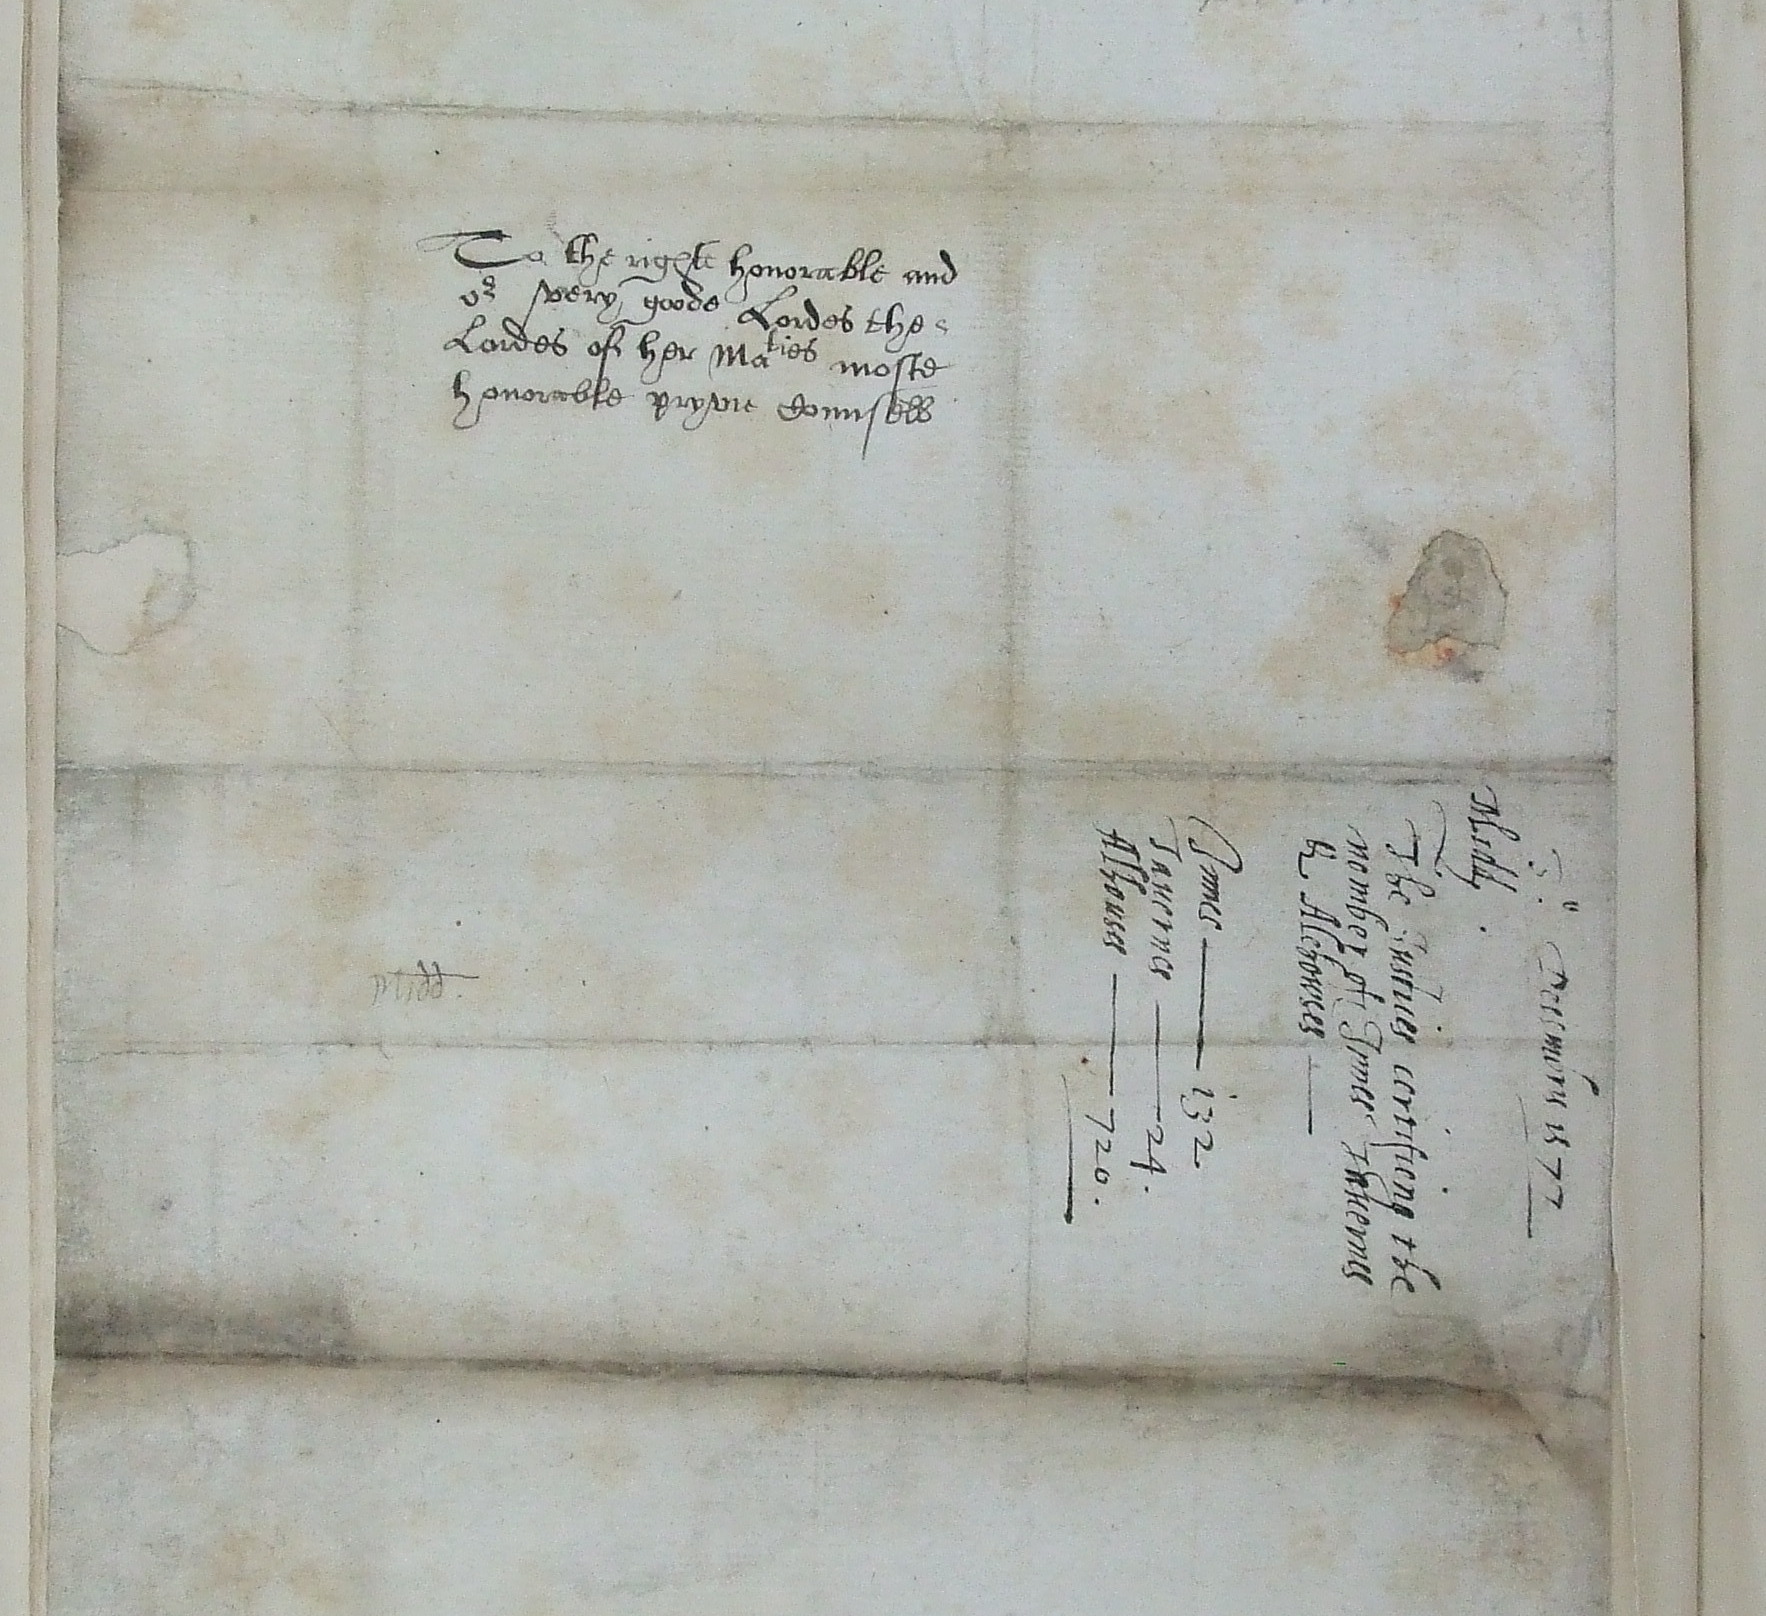 To the right honorable and
or very goode Lordes the
Lordes of her Maties moste
honorable pryvie Counsell
Decembris 1577
Midd
The Justices certifieng the
nomber of Innes Taverns
& Alehowses
Innes 132
Tavernes 24.
Alhouses 720.
Midd.